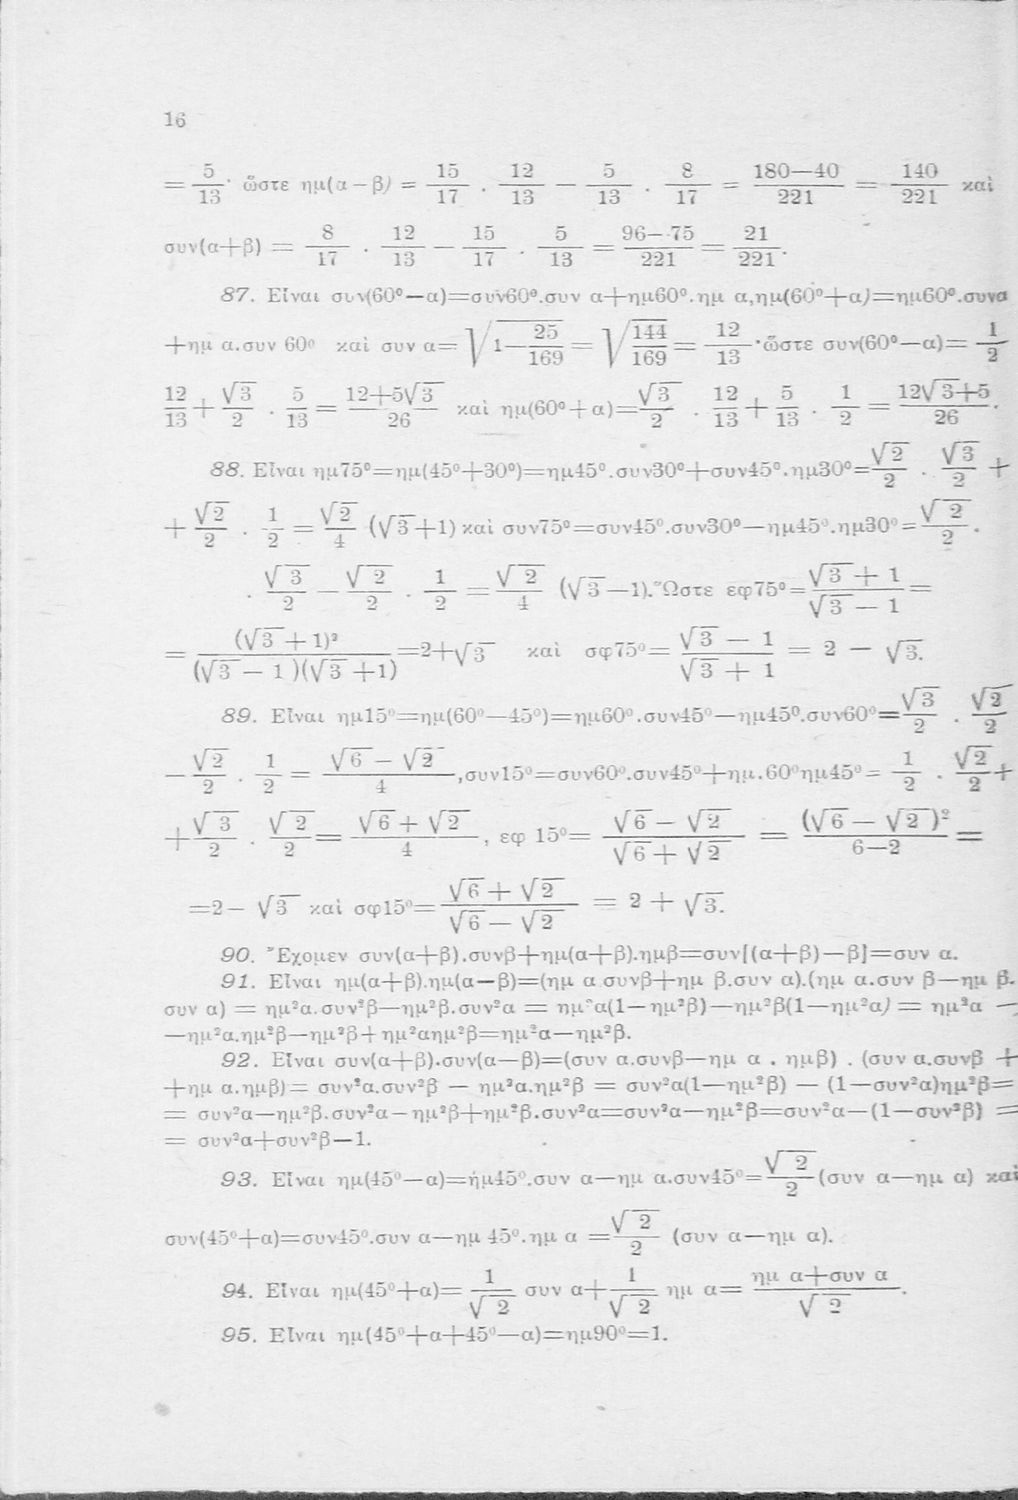 16
= 5/13· ὥστε ημ(α−β) = 15/17 . 12/13 − 5/13 . 8/17 = 180—40/221 = 140/221 καὶ
συν(α+β) = 8/17 . 12/13 − 15/17 . 5/13 = 96−75/221 = 21/221.
87. Εἶναι συν(60⁰—α)=συν60⁰.συν α+ημ60⁰.ημ α,ημ(60⁰+α)=ημ60⁰.συνα
+ημ α.συν 60⁰ καὶ συν α= √(1—25/169) = √(144/169) = 12/13 ·ὥστε συν(60⁰—α)= 1/2
12/13 + √3/2 . 5/13 = 12+5√3/26 καὶ ημ(60⁰+α)=√3/2 . 12/13 + 5/13 . 1/2 = 12√3+5/26.
88. Εἶναι ημ75⁰=ημ(45⁰+30⁰)=ημ45⁰.συν30⁰+συν45⁰.ημ30⁰=√2/2 . √3/2 +
+ √2/2 . 1/2 = √2/4 (√3+1) καὶ συν75⁰=συν45⁰.συν30⁰—ημ45⁰.ημ30⁰=√2/2 .
. √3/2 — √2/2 . 1/2 = √2/4 (√3—1). Ὥστε εφ75⁰=√3+1/√3—1 =
= (√3+1)²/(√3—1)(√3+1) =2+√3 καὶ σφ75⁰= √3—1/√3+1 = 2 — √3.
89. Εἶναι ημ15⁰=ημ(60⁰—45⁰)=ημ60⁰.συν45⁰—ημ45⁰.συν60⁰=√3/2 . √2/2
— √2/2 . 1/2 = √6—√2/4 ,συν15⁰=συν60⁰.συν45⁰+ημ.60⁰ημ45⁰= 1/2 . √2/2 +
+ √3/2 . √2/2 = √6+√2/4 , εφ 15⁰= √6—√2/√6+√2 = (√6—√2)²/6—2 =
=2— √3 καὶ σφ15⁰= √6+√2/√6—√2 = 2 + √3.
90. Ἔχομεν συν(α+β).συνβ+ημ(α+β).ημβ=συν[(α+β)—β]=συν α.
91. Εἶναι ημ(α+β).ημ(α—β)=(ημ α.συνβ+ημ β.συν α).(ημ α.συν β—ημ β.
συν α) = ημ²α.συν²β—ημ²β.συν²α = ημ²α(1—ημ²β)—ημ²β(1—ημ²α) = ημ²α —
—ημ²α.ημ²β—ημ²β+ημ²αημ²β=ημ²α—ημ²β.
92. Εἶναι συν(α+β).συν(α—β)=(συν α.συνβ—ημ α . ημβ) . (συν α.συνβ +
+ημ α.ημβ)= συν²α.συν²β — ημ²α.ημ²β = συν²α(1—ημ²β) — (1—συν²α)ημ²β=
= συν²α—ημ²β.συν²α—ημ²β+ημ²β.συν²α=συν²α—ημ²β=συν²α—(1—συν²β) =
= συν²α+συν²β—1.
93. Εἶναι ημ(45⁰—α)=ἡμ45⁰.συν α—ημ α.συν45⁰=√2/2 (συν α—ημ α) καὶ
συν(45⁰+α)=συν45⁰.συν α—ημ 45⁰.ημ α =√2/2 (συν α—ημ α).
94. Εἶναι ημ(45⁰+α)= 1/√2 συν α+ 1/√2 ημ α= ημ α+συν α/√2.
95. Εἶναι ημ(45⁰+α+45⁰—α)=ημ90⁰=1.